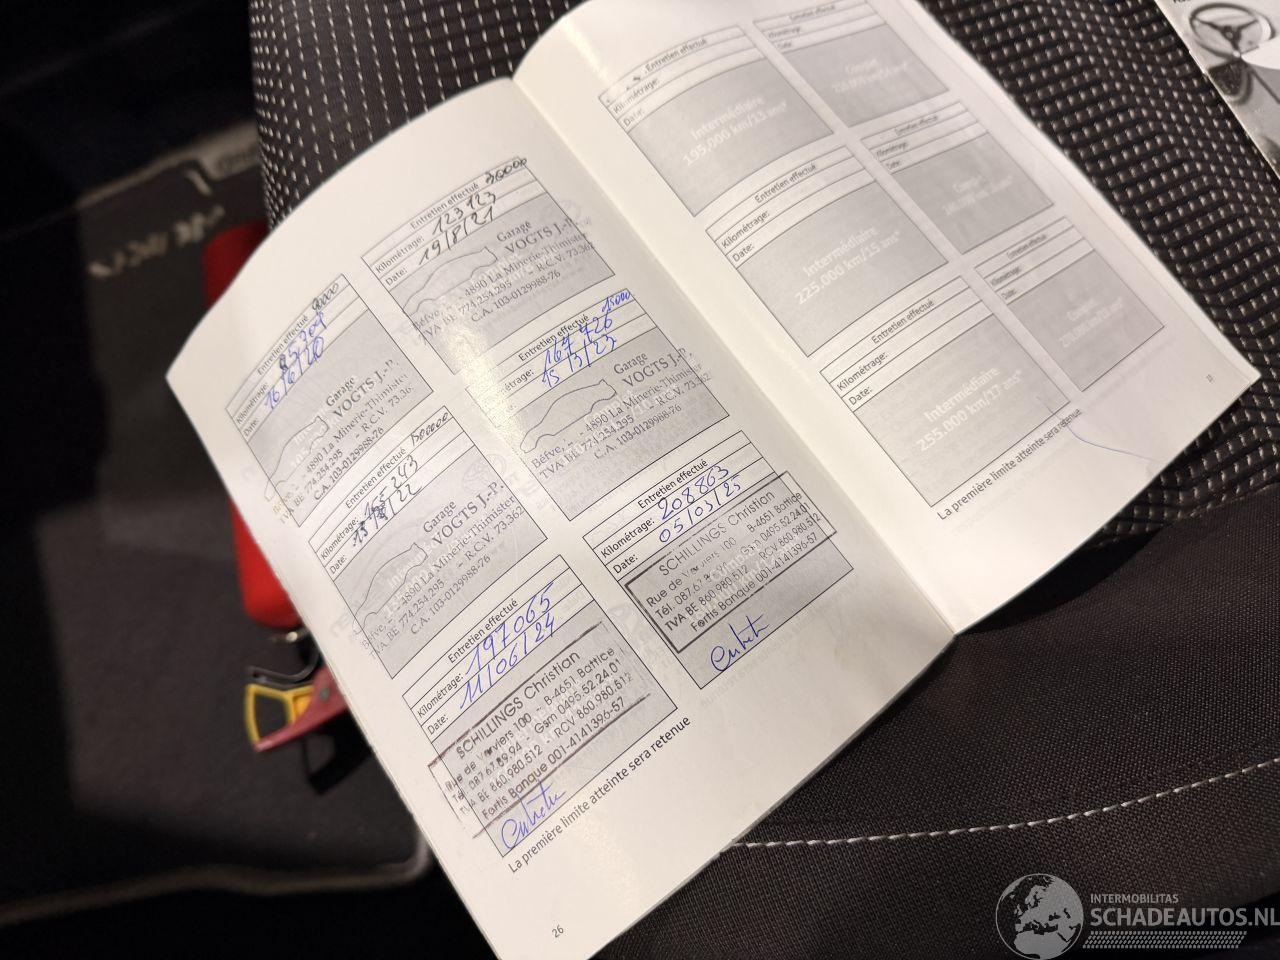 Entretien effectué 90000
Kilométrage:
Date: 16/6/20
Garage
VOGTS J.-P.
Béfve, – 4890 La Minerie-Thimister
TVA BE 774.254.295 – R.C.V. 73.362
C.A. 103-0129988-76
Entretien effectué
Kilométrage: 123123
Date: 19/8/21
Garage
VOGTS J.-P.
Béfve, – 4890 La Minerie-Thimister
TVA BE 774.254.295 – R.C.V. 73.362
C.A. 103-0129988-76
Entretien effectué
Kilométrage:
Date:
Garage
VOGTS J.-P.
Béfve, – 4890 La Minerie-Thimister
TVA BE 774.254.295 – R.C.V. 73.362
C.A. 103-0129988-76
Entretien effectué 15000
Kilométrage:
Garage
VOGTS J.-P.
Béfve, – 4890 La Minerie-Thimister
TVA BE 774.254.295 – R.C.V. 73.362
C.A. 103-0129988-76
Entretien effectué
Kilométrage: 197065
Date: 11/06/24
SCHILLINGS Christian
Rue de Verviers 100 – B-4651 Battice
Tél. 087.67.89.94 – Gsm 0495.52.24.01
TVA BE 860.980.512 RCV 860.980.512
Fortis Banque 001-4141396-57
Entretien effectué
Kilométrage: 208863
Date: 05/03/25
SCHILLINGS Christian
Rue de Verviers 100 B-4651 Battice
Tél. 087.67.89.94 Gsm 0495.52.24.01
TVA BE 860.980.512 RCV 860.980.512
Fortis Banque 001-4141396-57
La première limite atteinte sera retenue
26
Entretien effectué
Kilométrage:
Date:
Intermédiaire
195.000 km/13 ans*
Entretien effectué
Kilométrage:
Date:
Complet
Entretien effectué
Kilométrage:
Date:
Intermédiaire
225.000 km/15 ans*
Entretien effectué
Kilométrage:
Date:
Complet
Entretien effectué
Kilométrage:
Date:
Intermédiaire
255.000 km/17 ans*
Entretien effectué
Kilométrage:
Date:
Complet
La première limite atteinte sera retenue
INTERMOBILITAS
SCHADEAUTOS.NL